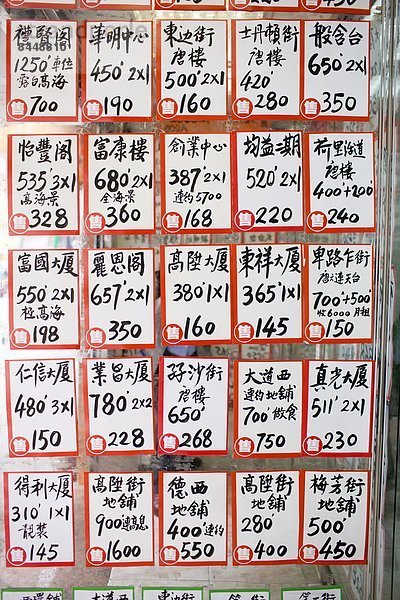 禮賢閣
1250' 車位
露台高海
售 700
車明中心
450' 2x1
售 190
東边街
唐楼
500' 2x1
售 160
士丹頓街
唐楼
420'
售 280
般含台
650' 2x1
售 350
怡豐阁
535' 3x1
高海景
售 328
富康楼
680' 2x1
全海景
售 360
創業中心
387' 2x1
連約5700
售 168
均益二期
520' 2x1
售 220
荷里活道
唐楼
400'+200'
售 240
富國大厦
550' 2x1
極高海
售 198
麗恩阁
657' 2x1
售 350
高陞大厦
380' 1x1
售 160
東祥大厦
365' 1x1
售 145
卑路乍街
唐六連天台
700'+500'
收6000月租
售 150
仁信大厦
480' 3x1
售 150
業昌大厦
780' 2x2
售 228
孖沙街
唐楼
650'
售 268
大道西
連約地舖
700' 做食
售 750
真光大厦
511' 2x1
售 230
得利大厦
310' 1x1
靚装
售 145
高陞街
地舖
900' 連高息
售 1600
德西
地舖
400' 連約
售 550
高陞街
地舖
280'
售 400
梅芳街
地舖
500'
售 450
大道西
東边街